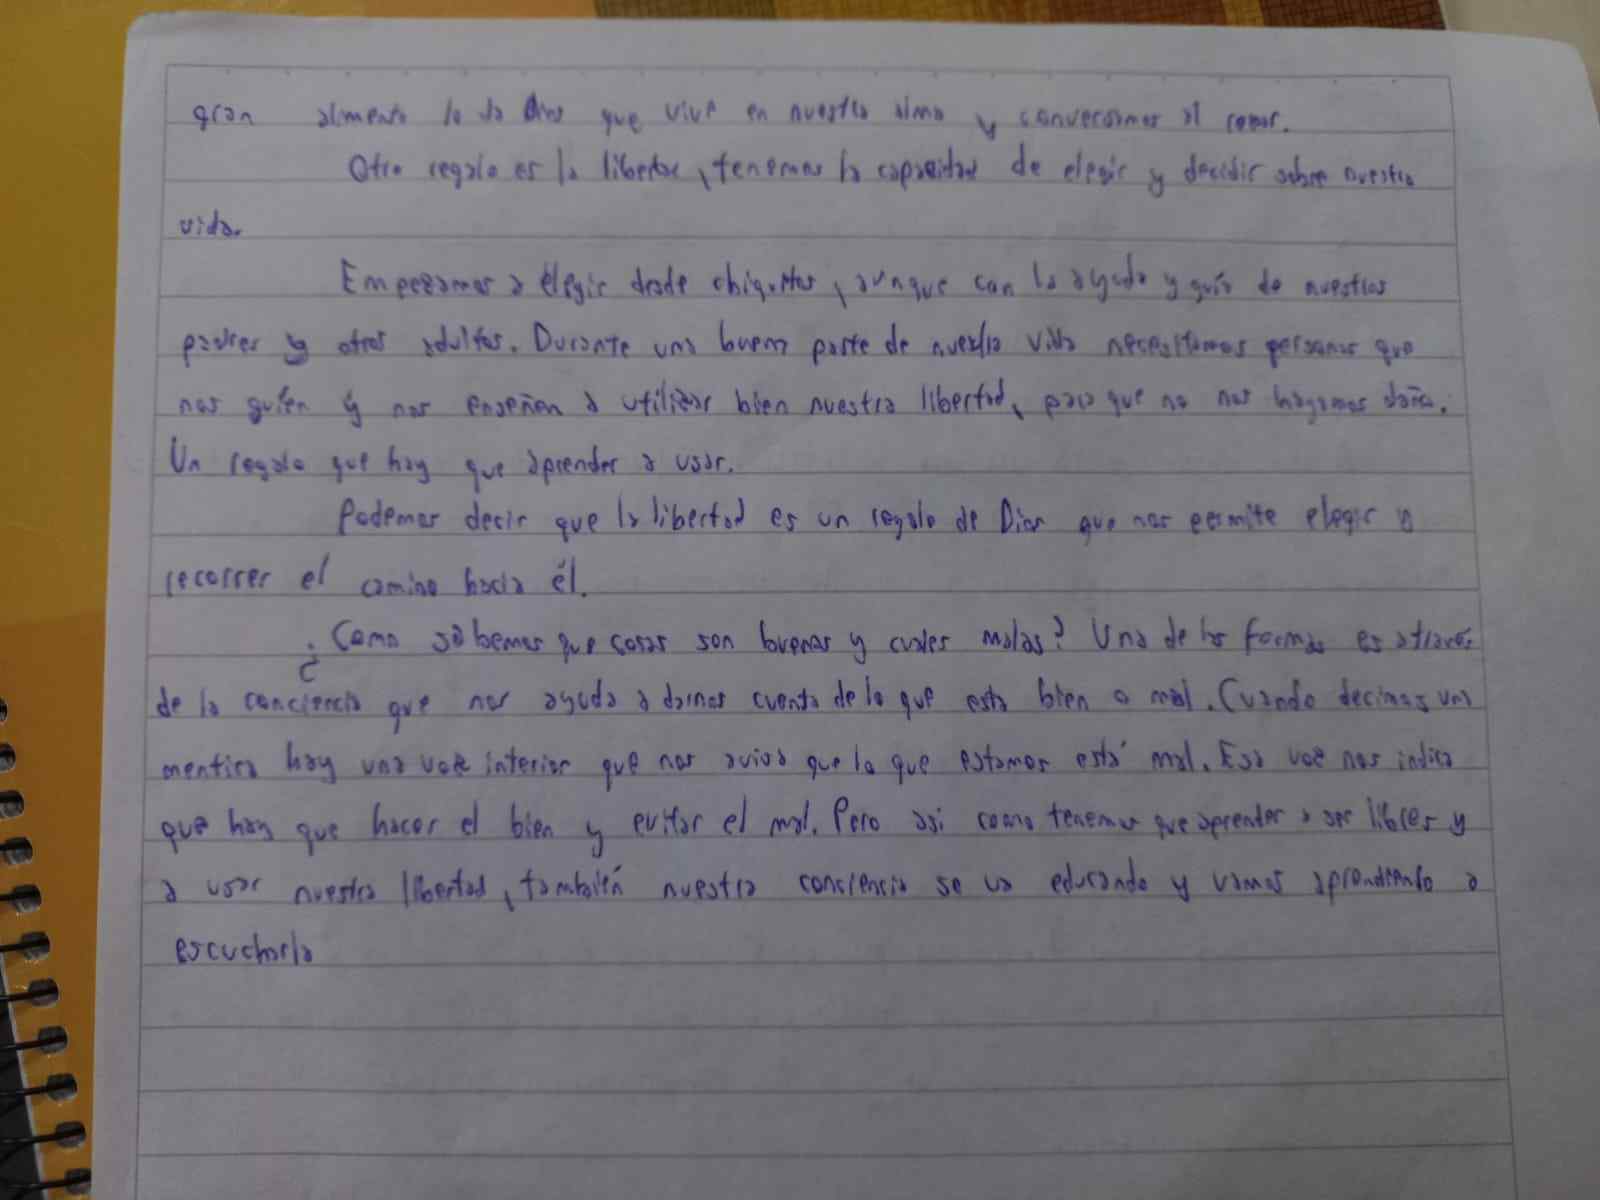 gran alimento lo da Dios que vive en nuestra alma y conversamos al rezar.
Otro regalo es la libertad, tenemos la capacidad de elegir y decidir sobre nuestra
vida.
Empezamos a elegir desde chiquitos, aunque con la ayuda y guía de nuestros
padres y otros adultos. Durante una buena parte de nuestra vida necesitamos personas que
nos guíen y nos enseñen a utilizar bien nuestra libertad, para que no nos hagamos daño.
Un regalo que hay que aprender a usar.
Podemos decir que la libertad es un regalo de Dios que nos permite elegir y
recorrer el camino hacia él.
¿Como sabemos que cosas son buenas y cuales malas? Una de las formas es a través
de la conciencia que nos ayuda a darnos cuenta de lo que esta bien o mal. Cuando decimos una
mentira hay una voz interior que nos avisa que lo que estamos está mal. Esa voz nos indica
que hay que hacer el bien y evitar el mal. Pero asi como tenemos que aprender a ser libres y
a usar nuestra libertad, también nuestra conciencia se va educando y vamos aprendiendo a
escucharla